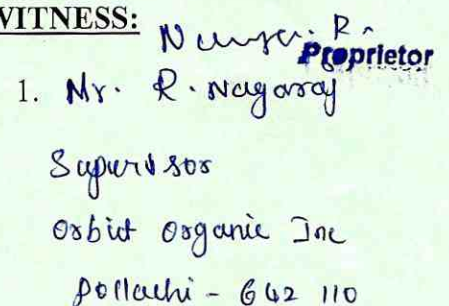 WITNESS:
Proprietor
1. Mr. R. Nagaraj
Supervisor
Orbit Organic Inc
Pollachi - 642 110